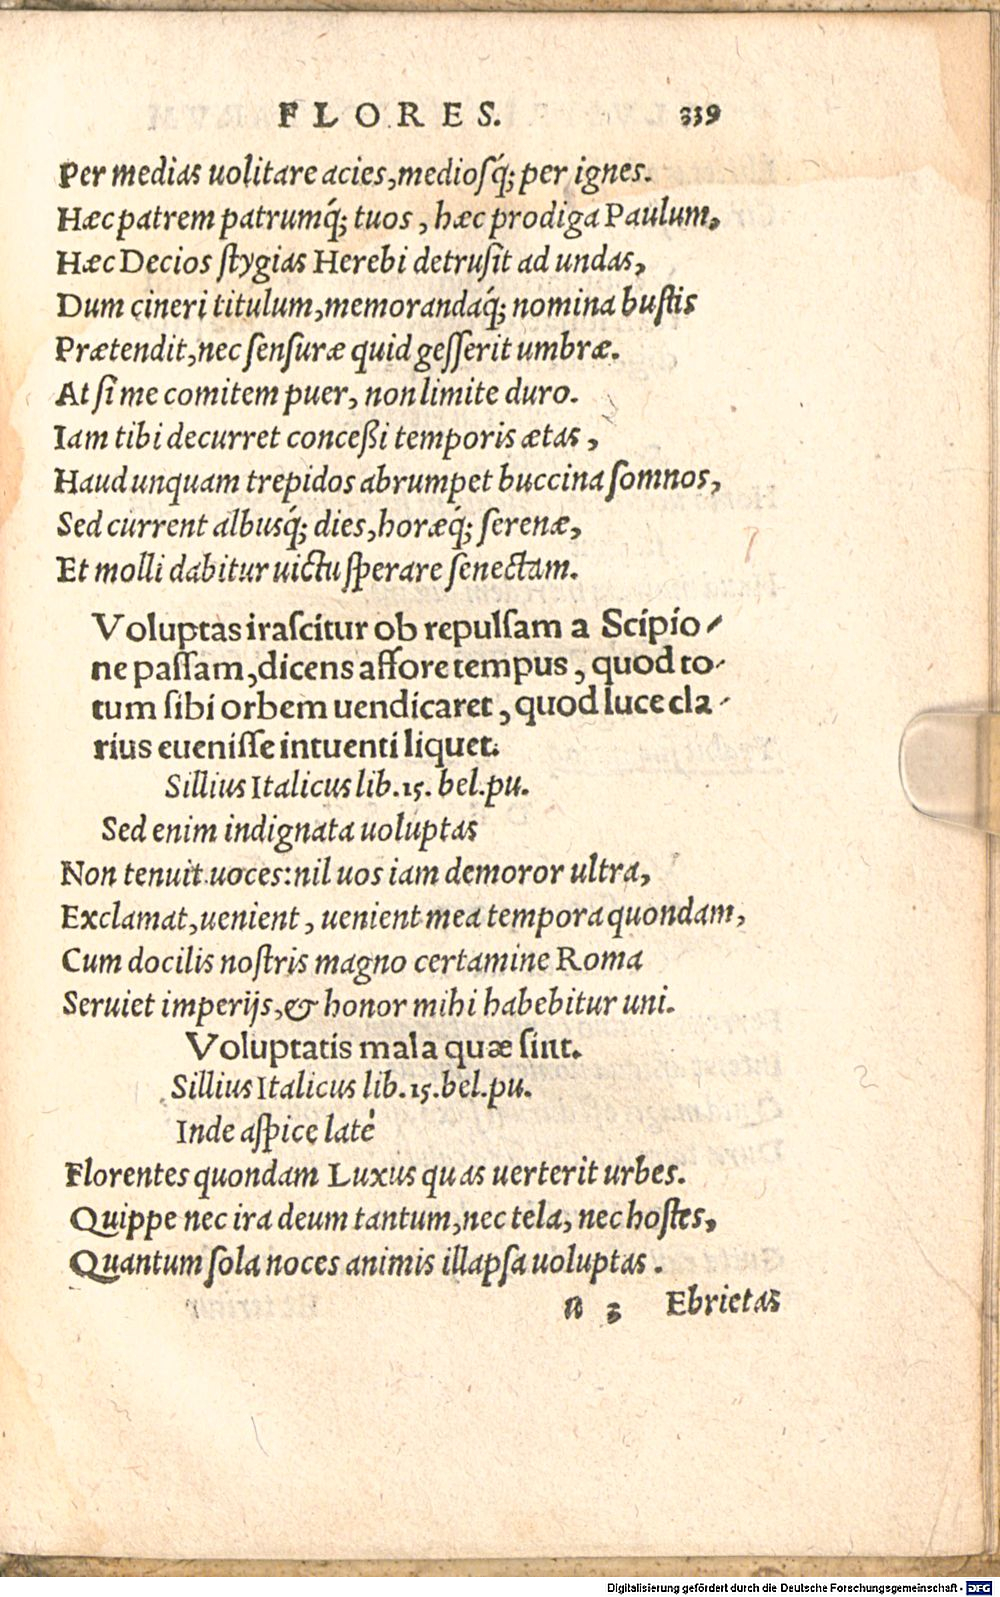 FLORES. 339
Per medias uolitare acies,mediosq́; per ignes.
Hæc patrem patrumq́; tuos , hæc prodiga Paulum,
Hæc Decios stygias Herebi detrusit ad undas,
Dum cineri titulum,memorandaq́; nomina bustis
Prætendit,nec sensuræ quid gesserit umbræ.
At si me comitem puer, non limite duro.
Iam tibi decurret conceßi temporis ætas ,
Haud unquam trepidos abrumpet buccina somnos,
Sed current albusq́; dies,horæq́; serenæ,
Et molli dabitur uictu sperare senectam.
Voluptas irascitur ob repulsam a Scipio-
ne passam,dicens affore tempus , quod to-
tum sibi orbem uendicaret , quod luce cla-
rius euenisse intuenti liquet.
Sillius Italicus lib.15. bel.pu.
Sed enim indignata uoluptas
Non tenuit uoces:nil uos iam demoror ultra,
Exclamat,uenient , uenient mea tempora quondam,
Cum docilis nostris magno certamine Roma
Seruiet imperijs,& honor mihi habebitur uni.
Voluptatis mala quæ sint.
Sillius Italicus lib.15.bel.pu.
Inde aspice laté
Florentes quondam Luxus quas uerterit urbes.
Quippe nec ira deum tantum,nec tela, nec hostes,
Quantum sola noces animis illapsa uoluptas .
n 3 Ebrietas
Digitalisierung gefördert durch die Deutsche Forschungsgemeinschaft - DFG